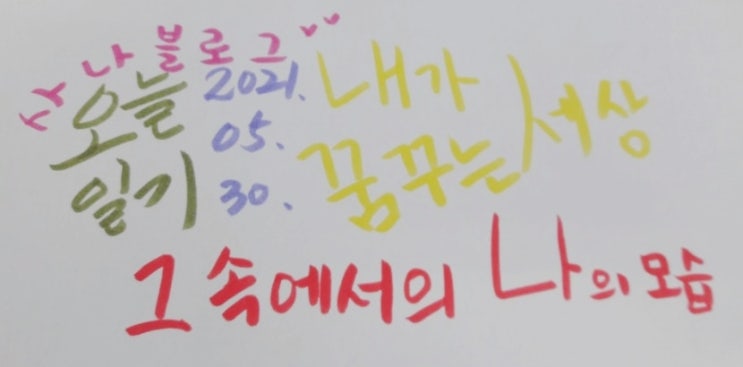 나블로그
오늘 일기
2021. 05. 30.
내가 꿈꾸는 세상
그 속에서의 나의 모습